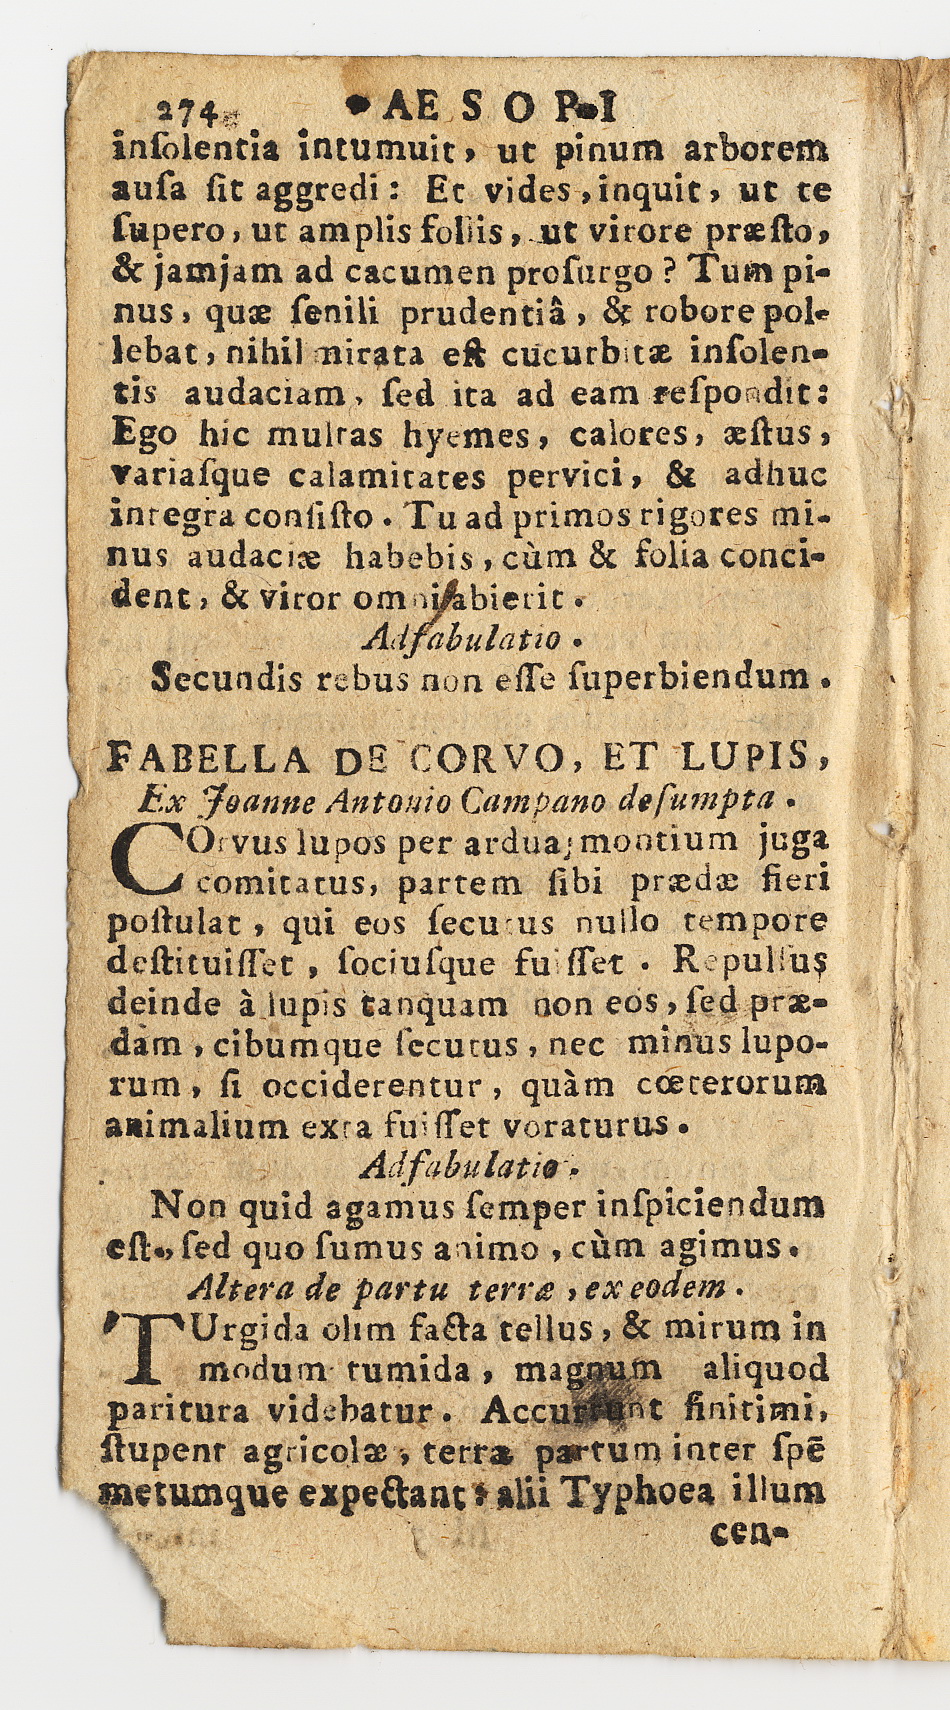 274 AESOPI
inſolentia intumuit, ut pinum arborem
auſa ſit aggredi: Et vides, inquit, ut te
ſupero, ut amplis foliis, ut virore præſto,
& jamjam ad cacumen proſurgo? Tum pi-
nus, quæ ſenili prudentiâ, & robore pol-
lebat, nihil mirata eſt cucurbitæ inſolen-
tis audaciam, ſed ita ad eam reſpondit:
Ego hic multas hyemes, calores, æſtus,
variaſque calamitates pervici, & adhuc
integra conſiſto. Tu ad primos rigores mi-
nus audaciæ habebis, cùm & folia conci-
dent, & viror omnis abierit.
Adfabulatio.
Secundis rebus non eſſe ſuperbiendum.
FABELLA DE CORVO, ET LUPIS,
Ex Joanne Antonio Campano deſumpta.
COrvus lupos per ardua montium juga
comitatus, partem ſibi prædæ fieri
poſtulat, qui eos ſecutus nullo tempore
deſtituiſſet, ſociuſque fuiſſet. Repulſus
deinde à lupis tanquam non eos, ſed præ-
dam, cibumque ſecutus, nec minus lupo-
rum, ſi occiderentur, quàm cœterorum
animalium exta fuiſſet voraturus.
Adfabulatio.
Non quid agamus ſemper inſpiciendum
eſt, ſed quo ſumus animo, cùm agimus.
Altera de partu terræ, ex eodem.
TUrgida olim facta tellus, & mirum in
modum tumida, magnum aliquod
paritura videbatur. Accurrunt finitimi,
ſtupent agricolæ, terræ partum inter ſpē
metumque expectant: alii Typhoea illum
cen-